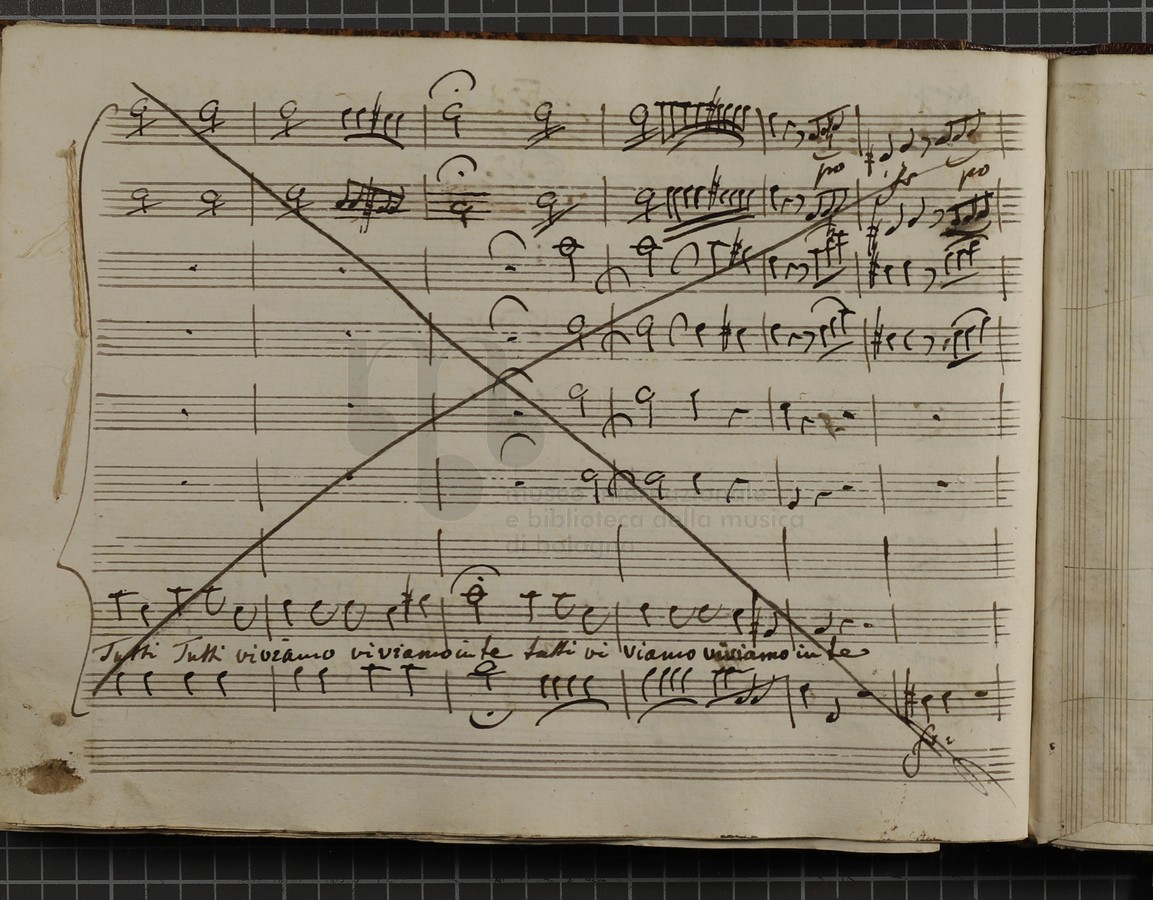 po
fs po
museo internazionale
e biblioteca della musica
di bologna
Tutti Tutti viviamo viviamo in te tutti vi viamo viviamo in te
fs